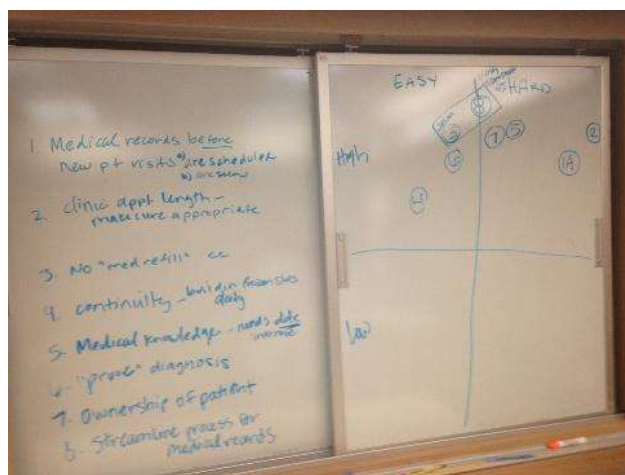 1. Medical records before
new pt visits a) are scheduled
b) are seen
2. clinic appt length -
make sure appropriate
3. No "med refill" cc
4. continuity - build in frozen slots
daily
5. Medical knowledge - needs
6. "prove" diagnosis
7. Ownership of patient
8. Streamline process for
medical records
EASY
HARD
High
8
3
7
5
2
6
4
Low